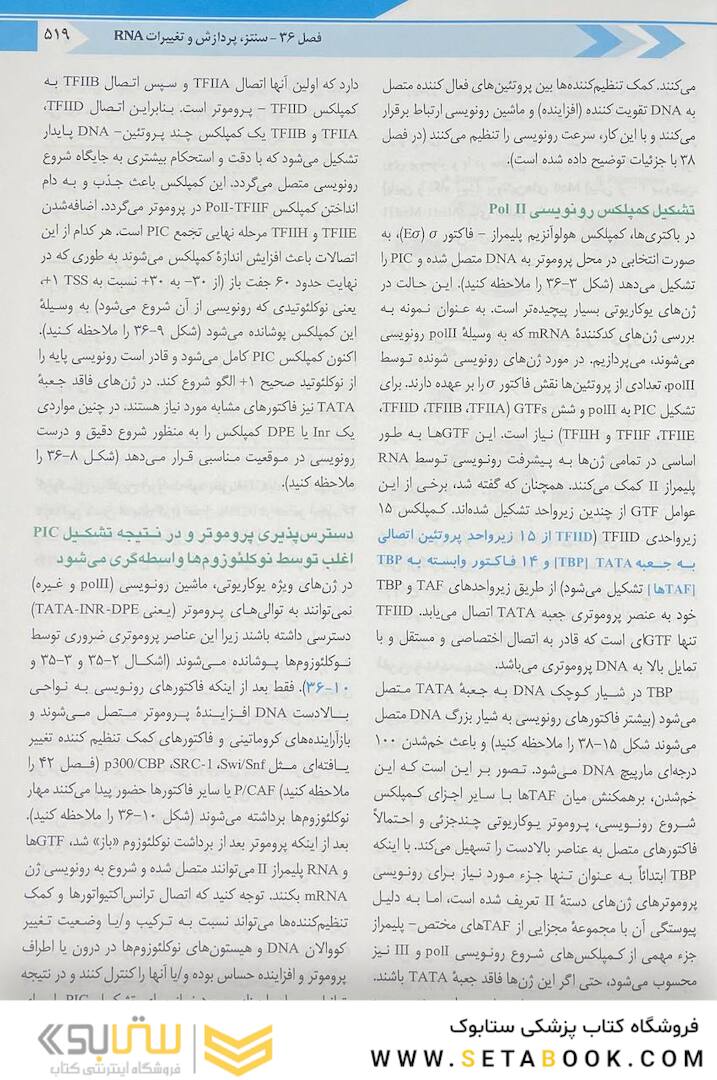 فصل ۳۶ - سنتز، پردازش و تغییرات RNA
۵۱۹
می‌کنند. کمک تنظیم‌کننده‌ها بین پروتئین‌های فعال کننده متصل
به DNA تقویت کننده (افزاینده) و ماشین رونویسی ارتباط برقرار
می‌کنند و با این کار، سرعت رونویسی را تنظیم می‌کنند (در فصل
۳۸ با جزئیات توضیح داده شده است).
تشکیل کمپلکس رونویسی Pol II
در باکتری‌ها، کمپلکس هولوآنزیم پلیمراز - فاکتور σ (Eσ)، به
صورت انتخابی در محل پروموتر به DNA متصل شده و PIC را
تشکیل می‌دهد (شکل ۳-۳۶ را ملاحظه کنید). این حالت در
ژن‌های یوکاریوتی بسیار پیچیده‌تر است. به عنوان نمونه به
بررسی ژن‌های کدکنندهٔ mRNA که به وسیلهٔ polII رونویسی
می‌شوند، می‌پردازیم. در مورد ژن‌های رونویسی شونده توسط
polII، تعدادی از پروتئین‌ها نقش فاکتور σ را بر عهده دارند. برای
تشکیل PIC به polII و شش GTFs (TFIIA، TFIIB، TFIID،
TFIIE، TFIIF و TFIIH) نیاز است. این GTFها به طور
اساسی در تمامی ژن‌ها به پیشرفت رونویسی توسط RNA
پلیمراز II کمک می‌کنند. همچنان که گفته شد، برخی از این
عوامل GTF از چندین زیرواحد تشکیل شده‌اند. کمپلکس ۱۵
زیرواحدی TFIID (TFIID از ۱۵ زیرواحد پروتئین اتصالی
به جعبه TATA [TBP] و ۱۴ فاکتور وابسته به TBP
[TAFها] تشکیل می‌شود) از طریق زیرواحدهای TAF و TBP
خود به عنصر پروموتری جعبه TATA اتصال می‌یابد. TFIID
تنها GTFای است که قادر به اتصال اختصاصی و مستقل و با
تمایل بالا به DNA پروموتری می‌باشد.
TBP در شیار کوچک DNA به جعبهٔ TATA متصل
می‌شود (بیشتر فاکتورهای رونویسی به شیار بزرگ DNA متصل
می‌شوند شکل ۱۵-۳۸ را ملاحظه کنید) و باعث خم‌شدن ۱۰۰
درجه‌ای مارپیچ DNA می‌شود. تصور بر این است که این
خم‌شدن، برهمکنش میان TAFها با سایر اجزای کمپلکس
شروع رونویسی، پروموتر یوکاریوتی چندجزئی و احتمالاً
فاکتورهای متصل به عناصر بالادست را تسهیل می‌کند. با اینکه
TBP ابتدائاً به عنوان تنها جزء مورد نیاز برای رونویسی
پروموترهای ژن‌های دستهٔ II تعریف شده است، اما به دلیل
پیوستگی آن با مجموعهٔ مجزایی از TAFهای مختص - پلیمراز
جزء مهمی از کمپلکس‌های شروع رونویسی polI و III نیز
محسوب می‌شود، حتی اگر این ژن‌ها فاقد جعبهٔ TATA باشند.
دارد که اولین آنها اتصال TFIIA و سپس اتصال TFIIB به
کمپلکس TFIID - پروموتر است. بنابراین اتصال TFIID،
TFIIA و TFIIB یک کمپلکس چند پروتئین- DNA پایدار
تشکیل می‌شود که با دقت و استحکام بیشتری به جایگاه شروع
رونویسی متصل می‌گردد. این کمپلکس باعث جذب و به دام
انداختن کمپلکس PolI-TFIIF در پروموتر می‌گردد. اضافه‌شدن
TFIIE و TFIIH مرحله نهایی تجمع PIC است. هر کدام از این
اتصالات باعث افزایش اندازهٔ کمپلکس می‌شوند به طوری که در
نهایت حدود ۶۰ جفت باز (از ۳۰- به ۳۰+ نسبت به TSS +۱،
یعنی نوکلئوتیدی که رونویسی از آن شروع می‌شود) به وسیلهٔ
این کمپلکس پوشانده می‌شود (شکل ۹-۳۶ را ملاحظه کنید).
اکنون کمپلکس PIC کامل می‌شود و قادر است رونویسی پایه را
از نوکلئوتید صحیح ۱+ الگو شروع کند. در ژن‌های فاقد جعبهٔ
TATA نیز فاکتورهای مشابه مورد نیاز هستند. در چنین مواردی
یک Inr یا DPE کمپلکس را به منظور شروع دقیق و درست
رونویسی در موقعیت مناسبی قرار می‌دهد (شکل ۸-۳۶ را
ملاحظه کنید).
دسترس‌پذیری پروموتر و در نتیجه تشکیل PIC
اغلب توسط نوکلئوزوم‌ها واسطه‌گری می‌شود
در ژن‌های ویژه یوکاریوتی، ماشین رونویسی (polII و غیره)
نمی‌توانند به توالی‌های پروموتر (یعنی TATA-INR-DPE)
دسترسی داشته باشند زیرا این عناصر پروموتری ضروری توسط
نوکلئوزوم‌ها پوشانده می‌شوند (اشکال ۲-۳۵ و ۳-۳۵ و
۱۰-۳۶). فقط بعد از اینکه فاکتورهای رونویسی به نواحی
بالادست DNA افزایندهٔ پروموتر متصل می‌شوند و
بازآراینده‌های کروماتینی و فاکتورهای کمک تنظیم کننده تغییر
یافته‌ای مثل Swi/Snf، SRC-1، p300/CBP (فصل ۴۲ را
ملاحظه کنید) P/CAF یا سایر فاکتورها حضور پیدا می‌کنند مهار
نوکلئوزوم‌ها برداشته می‌شوند (شکل ۱۰-۳۶ را ملاحظه کنید).
بعد از اینکه پروموتر بعد از برداشت نوکلئوزوم «باز» شد، GTFها
و RNA پلیمراز II می‌توانند متصل شده و شروع به رونویسی ژن
mRNA بکنند. توجه کنید که اتصال ترانس‌اکتیواتورها و کمک
تنظیم‌کننده‌ها می‌تواند نسبت به ترکیب و/یا وضعیت تغییر
کووالان DNA و هیستون‌های نوکلئوزوم‌ها در درون یا اطراف
پروموتر و افزاینده حساس بوده و/یا آنها را کنترل کنند و در نتیجه
ستابوک
فروشگاه اینترنتی کتاب
فروشگاه کتاب پزشکی ستابوک
WWW.SETABOOK.COM